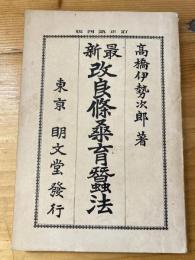 訂正第四版
高橋伊勢次郎 著
最新
改良條桑育蠶法
東京 明文堂發行